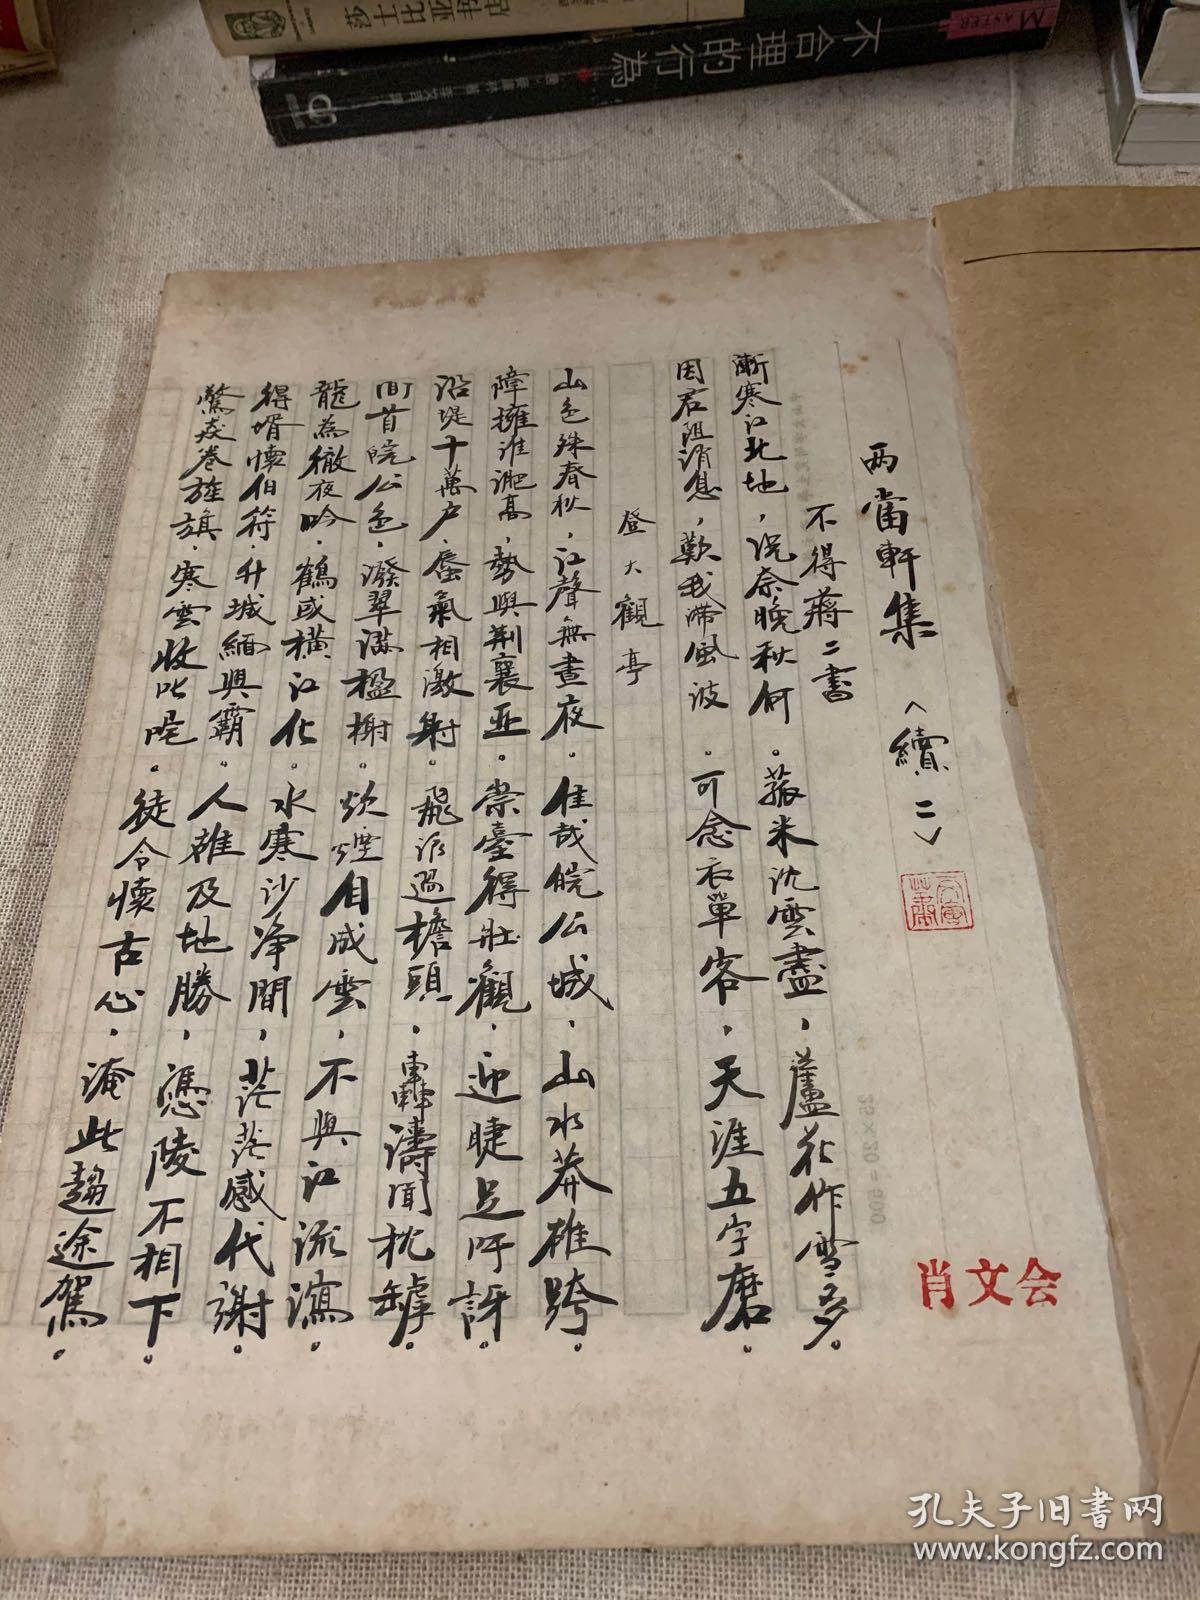 莎士比亚书店
不合理的行為
MASTER
两當軒集（續二）
不得蔣二書
漸寒江北地，況奈晚秋何。菰米沈雲盡，蘆花作雪多。
因君阻消息，歎我滯風波。可念衣單客，天涯五字磨。
登大觀亭
山色殊春秋，江聲無晝夜。佳哉皖公城，山水莽雄跨。
障擁淮淝高，勢與荆襄亚。崇臺得壯觀，迎睫足吁訝。
沿堤十萬户，蜃氣相激射。飛派過檐頭，轟濤聞枕罅。
間首皖公色，潑翠滿楹榭。炊煙自成雲，不與江流瀉。
龍為徹夜吟，鶴或橫江化。水寒沙净間，茫茫感代謝。
得壻懷伯符，升城緬興霸。人雄及地勝，憑陵不相下。
驚焱卷旌旗，寒雲收叱咤。徒令懷古心，淹此趨途駕。
肖文会
25×20=500
孔夫子旧书网
www.kongfz.com